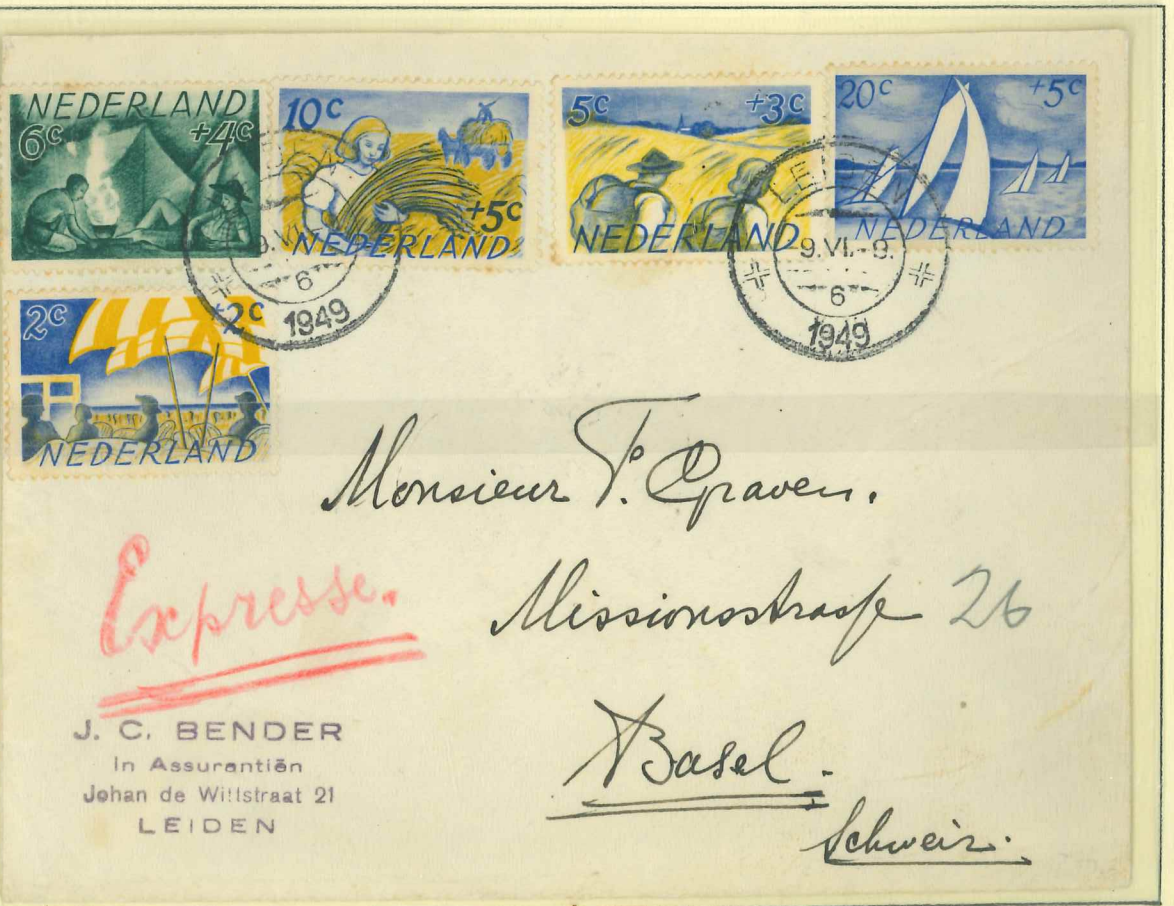 NEDERLAND
6c +4c
10c
+5c
NEDERLAND
5c +3c
NEDERLAND
20c +5c
NEDERLAND
2c +2c
NEDERLAND
6
1949
LEIDEN
9.VI.-9.
6
1949
Monsieur F. Graven.
Missionsstrasse 26
Basel.
Schweiz.
Expresse.
J. C. BENDER
In Assurantiën
Johan de Wittstraat 21
LEIDEN